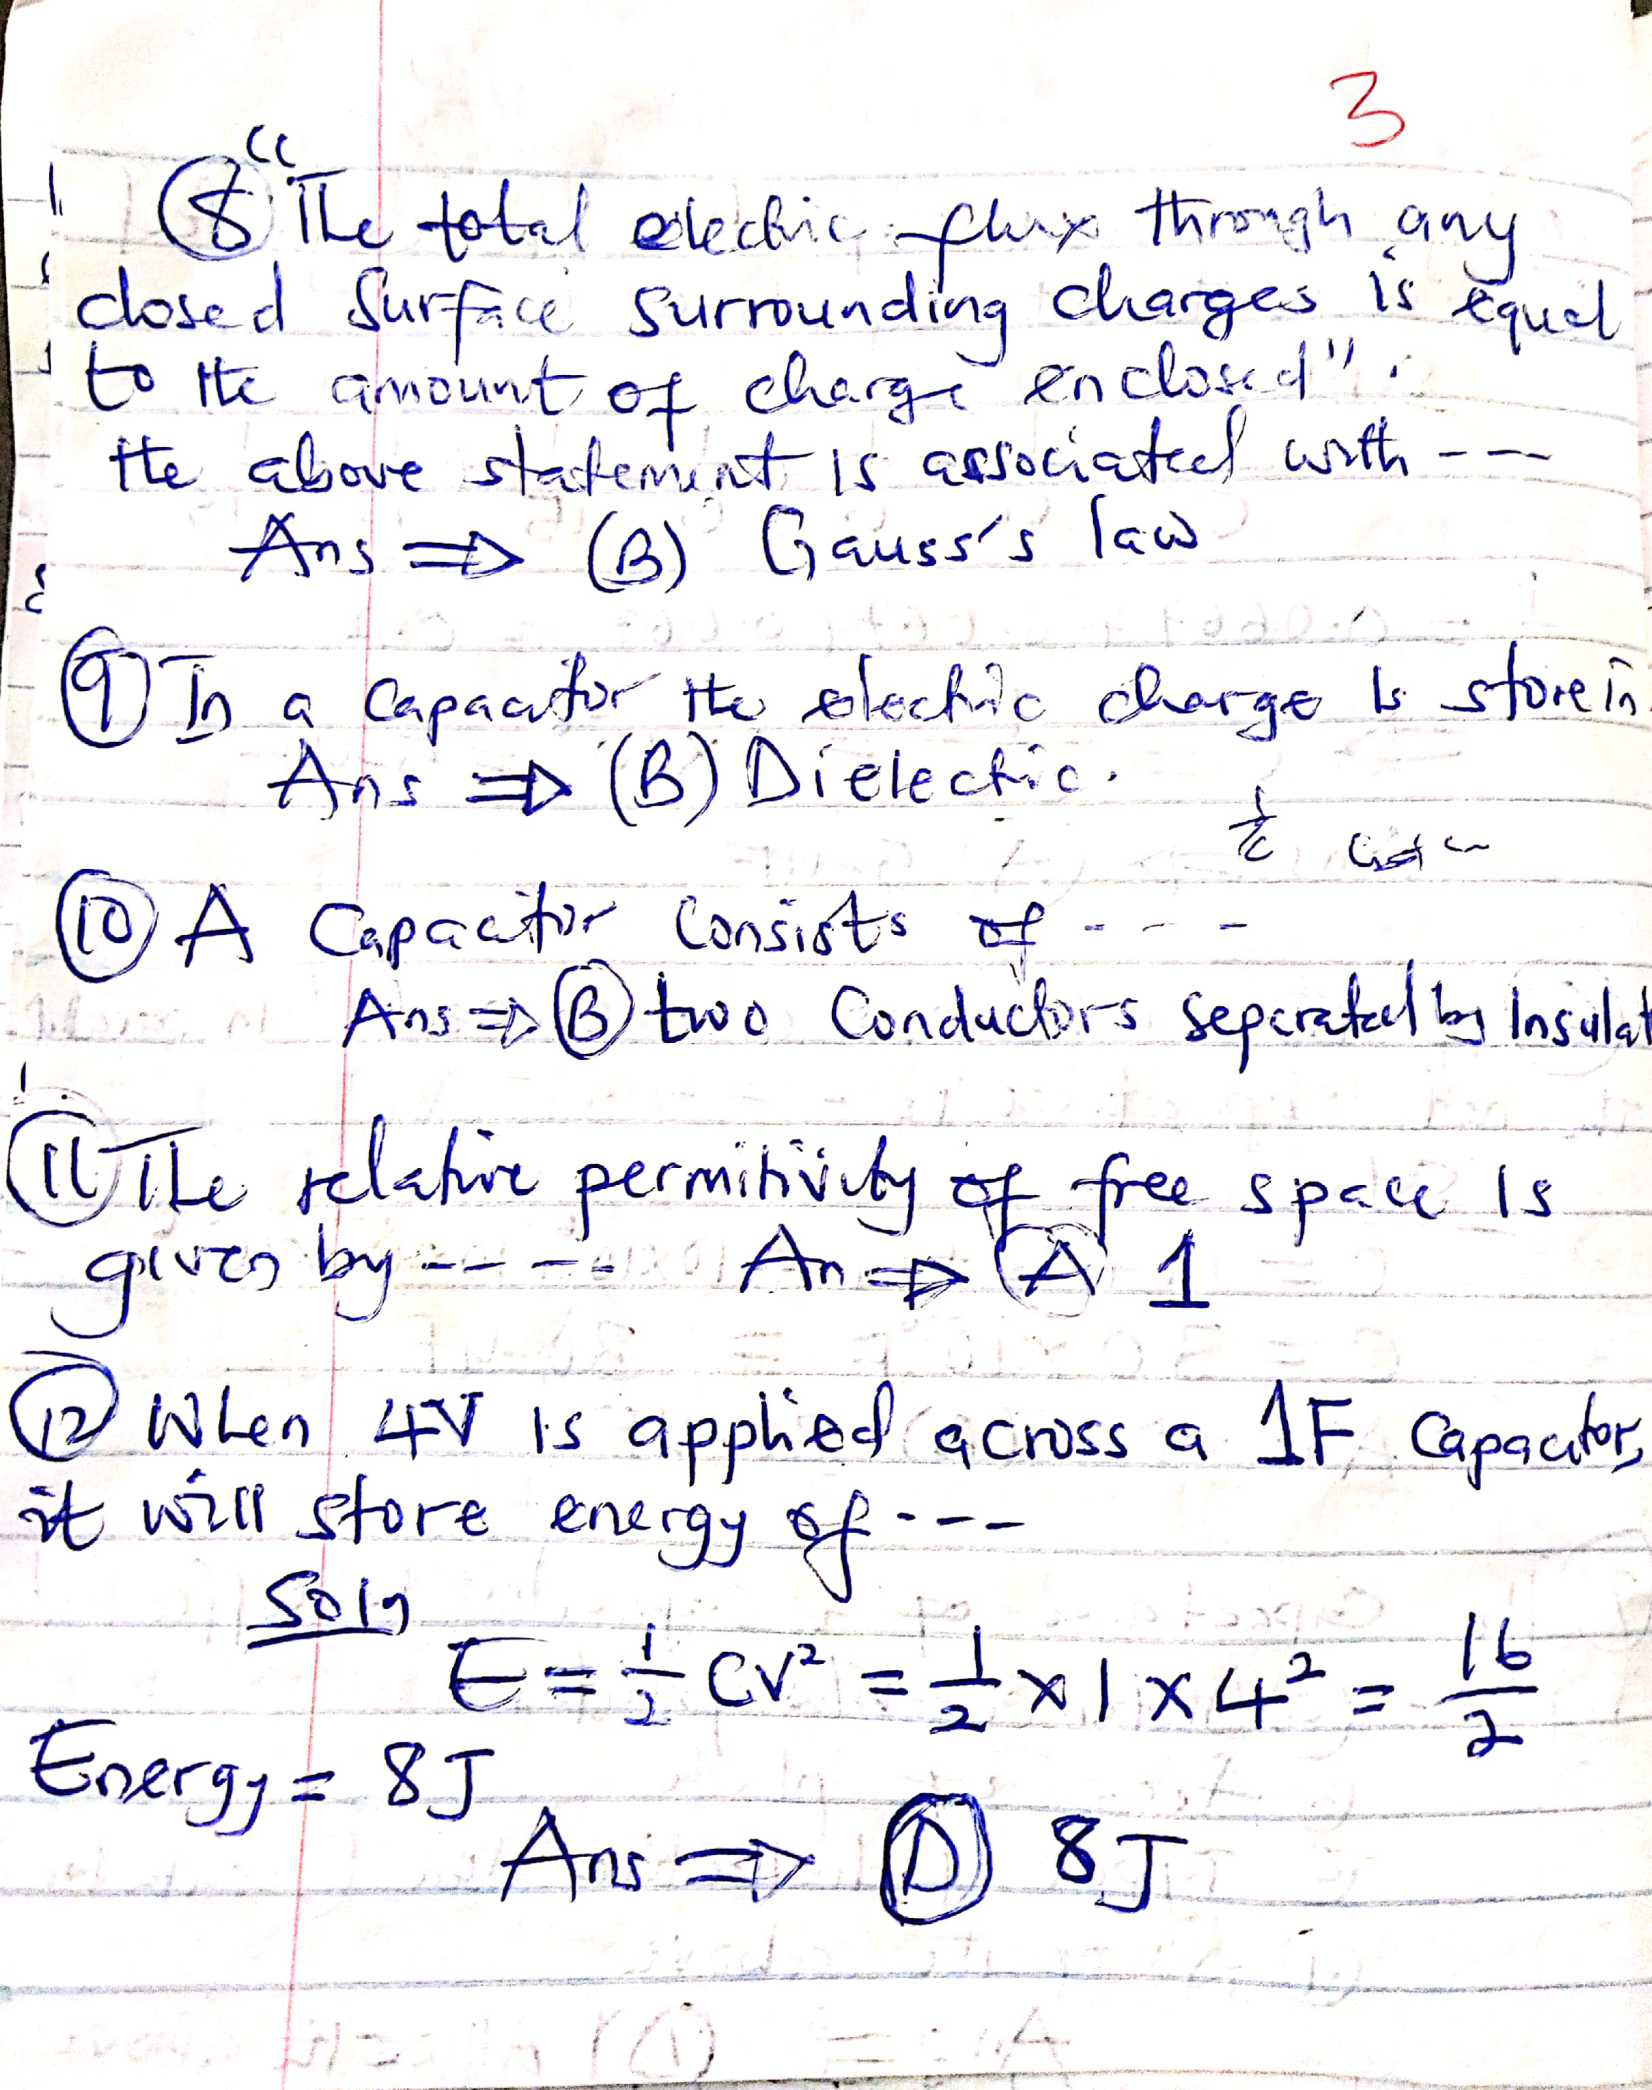 3
⑧ "The total electric flux through any
closed Surface surrounding charges is equal
to the amount of charge enclosed".
the above statement is associated with ---
Ans ⇒ (B) Gauss's law
⑨ In a capacitor the electric charge is store in
Ans ⇒ (B) Dielectric.
⑩ A Capacitor Consists of ----
Ans ⇒ Ⓑ two Conductors separated by Insulat
⑪ The relative permitivity of free space is
given by ----- An ⇒ Ⓐ 1
⑫ When 4V is applied across a 1F Capacitor,
it will store energy of ---
Soln
E = 1/2 CV² = 1/2 x 1 x 4² = 16/2
Energy = 8J
Ans ⇒ Ⓓ 8J